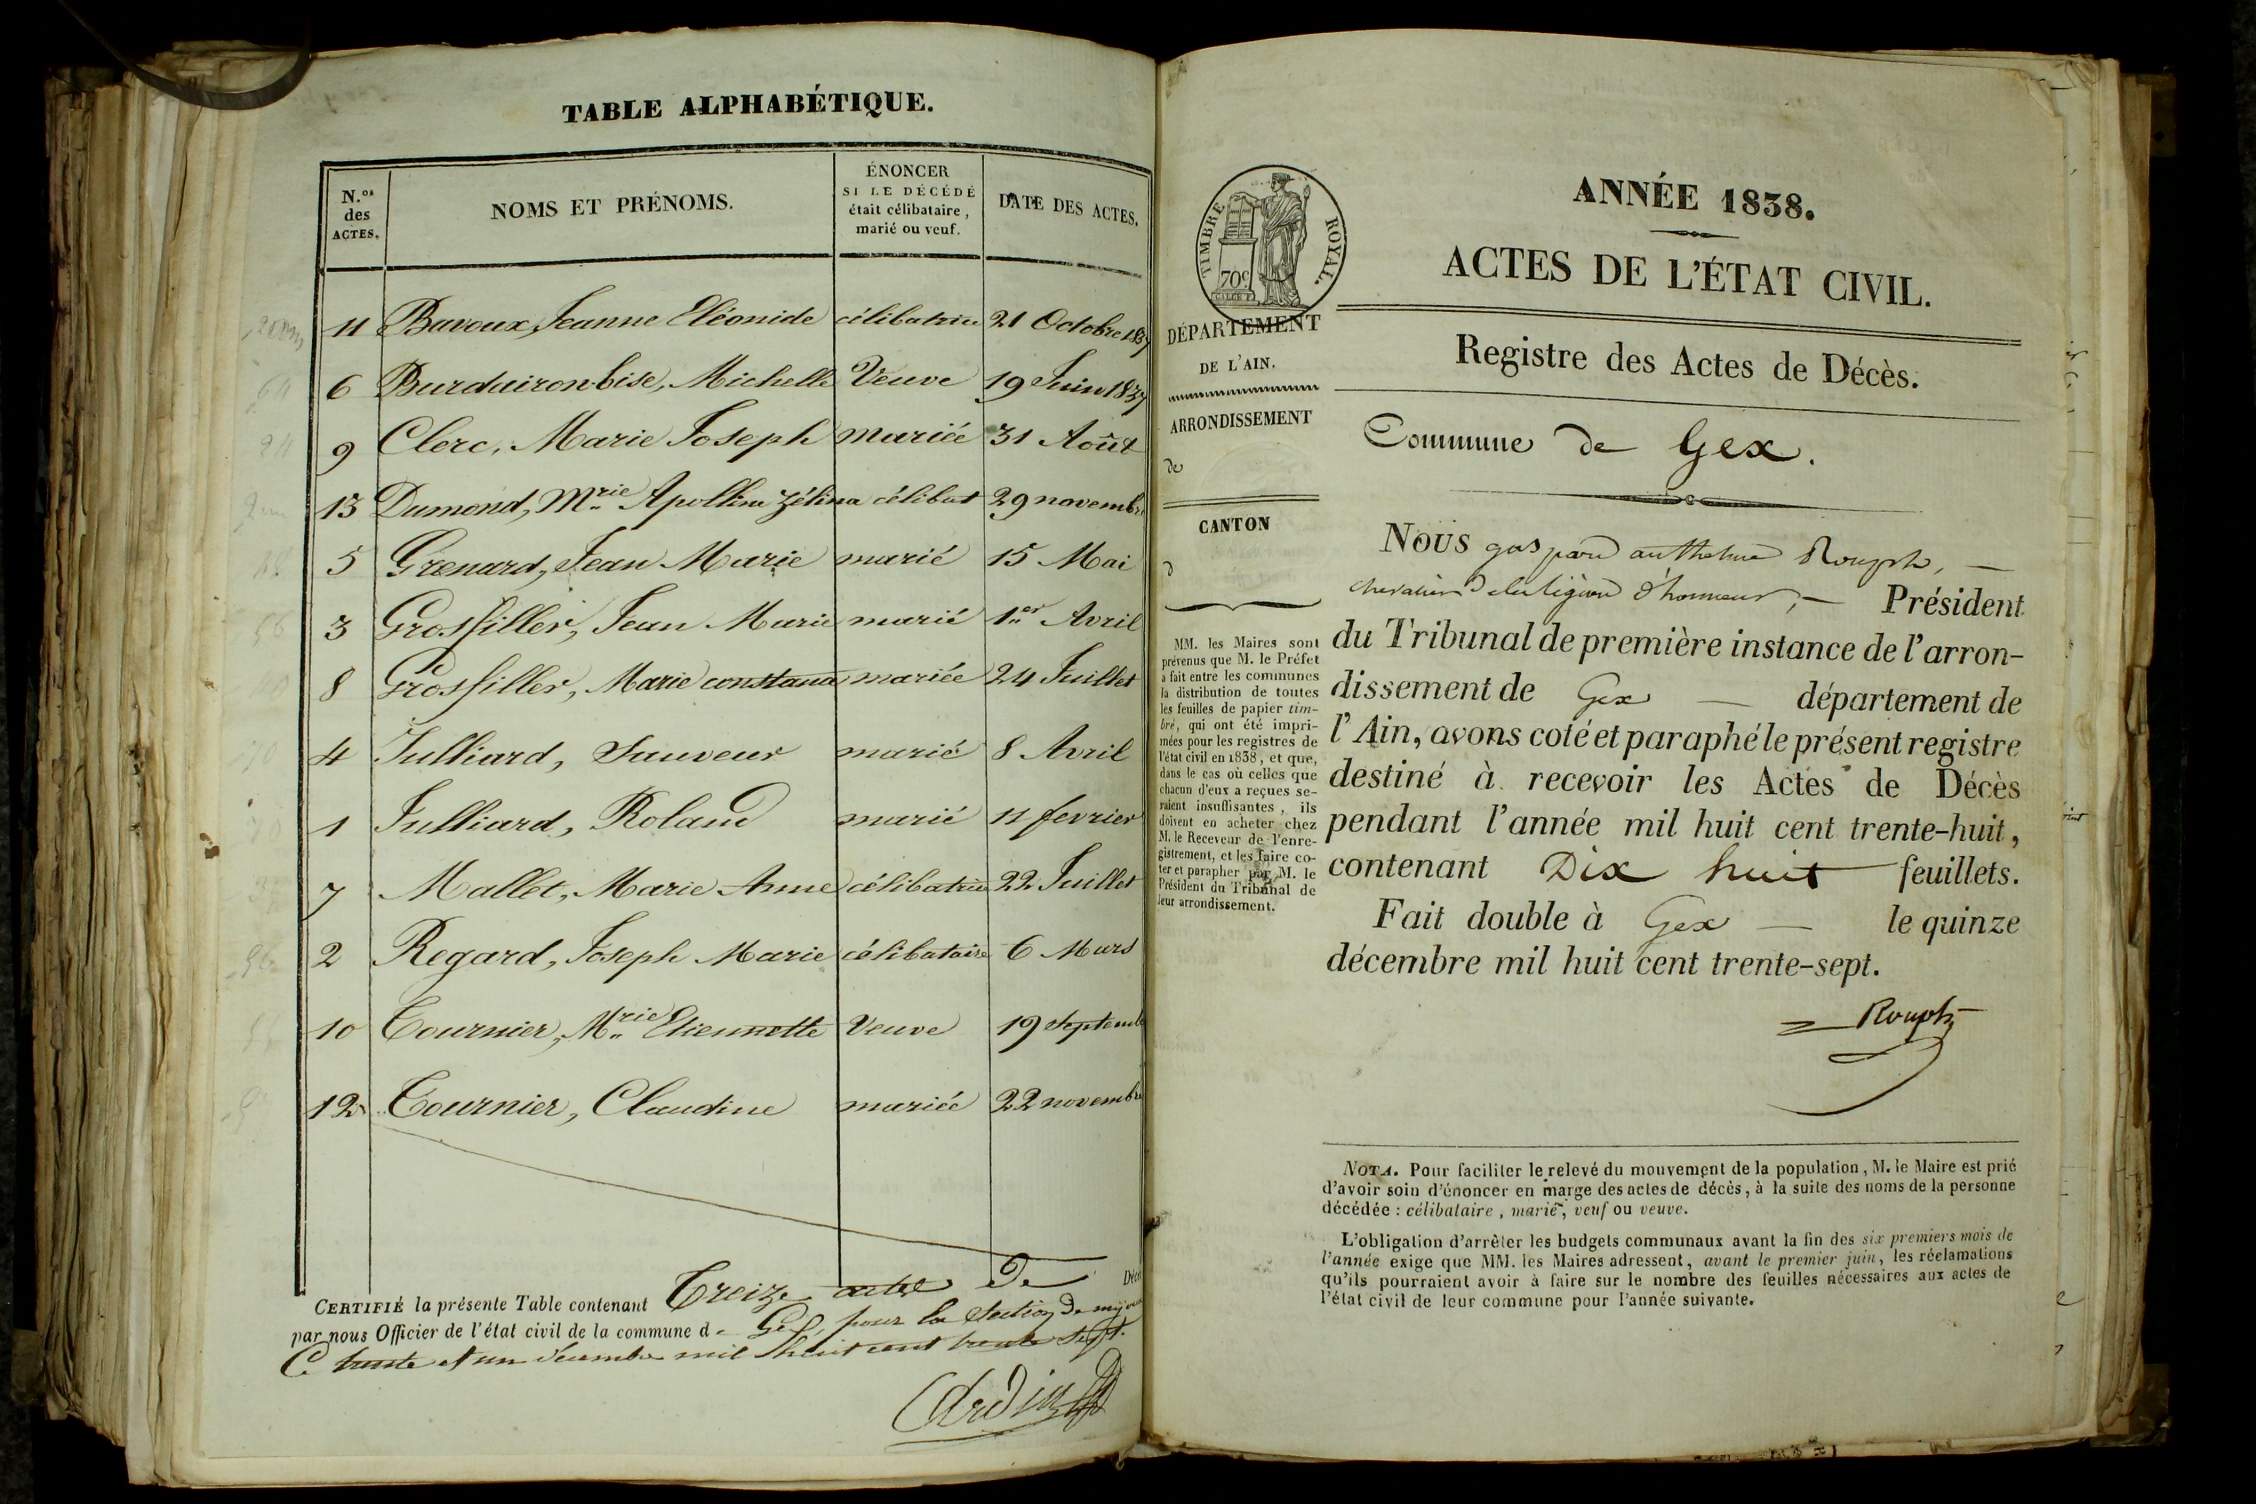 TABLE ALPHABÉTIQUE.
N.os des ACTES.
NOMS ET PRÉNOMS.
ÉNONCER SI LE DÉCÉDÉ était célibataire, marié ou veuf.
DATE DES ACTES.
11 Bavoux, Jeanne Eléonide célibatrice 21 Octobre 1837
6 Burdaironbise, Michelle Veuve 19 Juin 1837
9 Clerc, Marie Joseph mariée 31 Août
13 Dumond, Mrie Apolline Zélina célibat 29 novembre
5 Grenard, Jean Marie marié 15 Mai
3 Grosfiller, Jean Marie marié 1er Avril
8 Grosfiller, Marie constance mariée 24 Juillet
4 Julliard, Sauveur marié 8 Avril
1 Julliard, Roland marié 11 fevrier
7 Mallet, Marie Anne célibatrice 22 Juillet
2 Regard, Joseph Marie célibataire 6 Mars
10 Tournier, Mrie Etiennette Veuve 19 Septemb
12 Tournier, Claudine mariée 22 novembre
CERTIFIÉ la présente Table contenant Treize actes De Décè
par nous Officier de l'état civil de la commune d e Gex, pour la Section de mijoux
Ce trente et un décembre mil huit cent trente Sept.
TIMBRE ROYAL.
70c
DÉPARTEMENT
DE L'AIN.
ARRONDISSEMENT
de
CANTON
d
MM. les Maires sont
prévenus que M. le Préfet
a fait entre les communes
la distribution de toutes
les feuilles de papier tim-
bré, qui ont été impri-
mées pour les registres de
l'état civil en 1838, et que,
dans le cas où celles que
chacun d'eux a reçues se-
raient insuffisantes, ils
doivent en acheter chez
M. le Receveur de l'enre-
gistrement, et les faire co-
ter et parapher par M. le
Président du Tribunal de
leur arrondissement.
ANNÉE 1838.
ACTES DE L'ÉTAT CIVIL.
Registre des Actes de Décès.
Commune de Gex.
NOUS gaspard anthelme Rouph,
chevalier de la légion d'honneur, Président
du Tribunal de première instance de l'arron-
dissement de Gex département de
l'Ain, avons coté et paraphé le présent registre
destiné à recevoir les Actes de Décès
pendant l'année mil huit cent trente-huit,
contenant Dix huit feuillets.
Fait double à Gex le quinze
décembre mil huit cent trente-sept.
Rouph
NOTA. Pour faciliter le relevé du mouvement de la population, M. le Maire est prié
d'avoir soin d'énoncer en marge des actes de décès, à la suite des noms de la personne
décédée : célibataire, marié, veuf ou veuve.
L'obligation d'arrêter les budgets communaux avant la fin des six premiers mois de
l'année exige que MM. les Maires adressent, avant le premier juin, les réclamations
qu'ils pourraient avoir à faire sur le nombre des feuilles nécessaires aux actes de
l'état civil de leur commune pour l'année suivante.